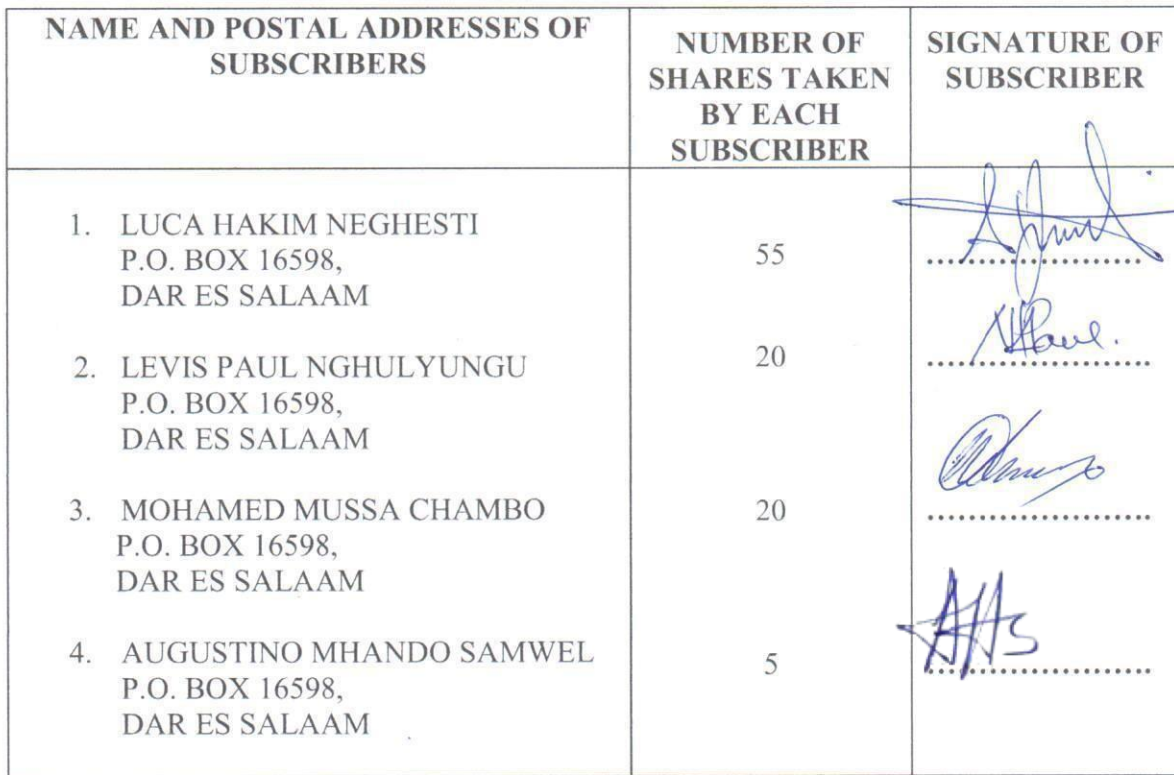 NAME AND POSTAL ADDRESSES OF
SUBSCRIBERS
NUMBER OF
SHARES TAKEN
BY EACH
SUBSCRIBER
SIGNATURE OF
SUBSCRIBER
1. LUCA HAKIM NEGHESTI
P.O. BOX 16598,
DAR ES SALAAM
55
2. LEVIS PAUL NGHULYUNGU
P.O. BOX 16598,
DAR ES SALAAM
20
3. MOHAMED MUSSA CHAMBO
P.O. BOX 16598,
DAR ES SALAAM
20
4. AUGUSTINO MHANDO SAMWEL
P.O. BOX 16598,
DAR ES SALAAM
5